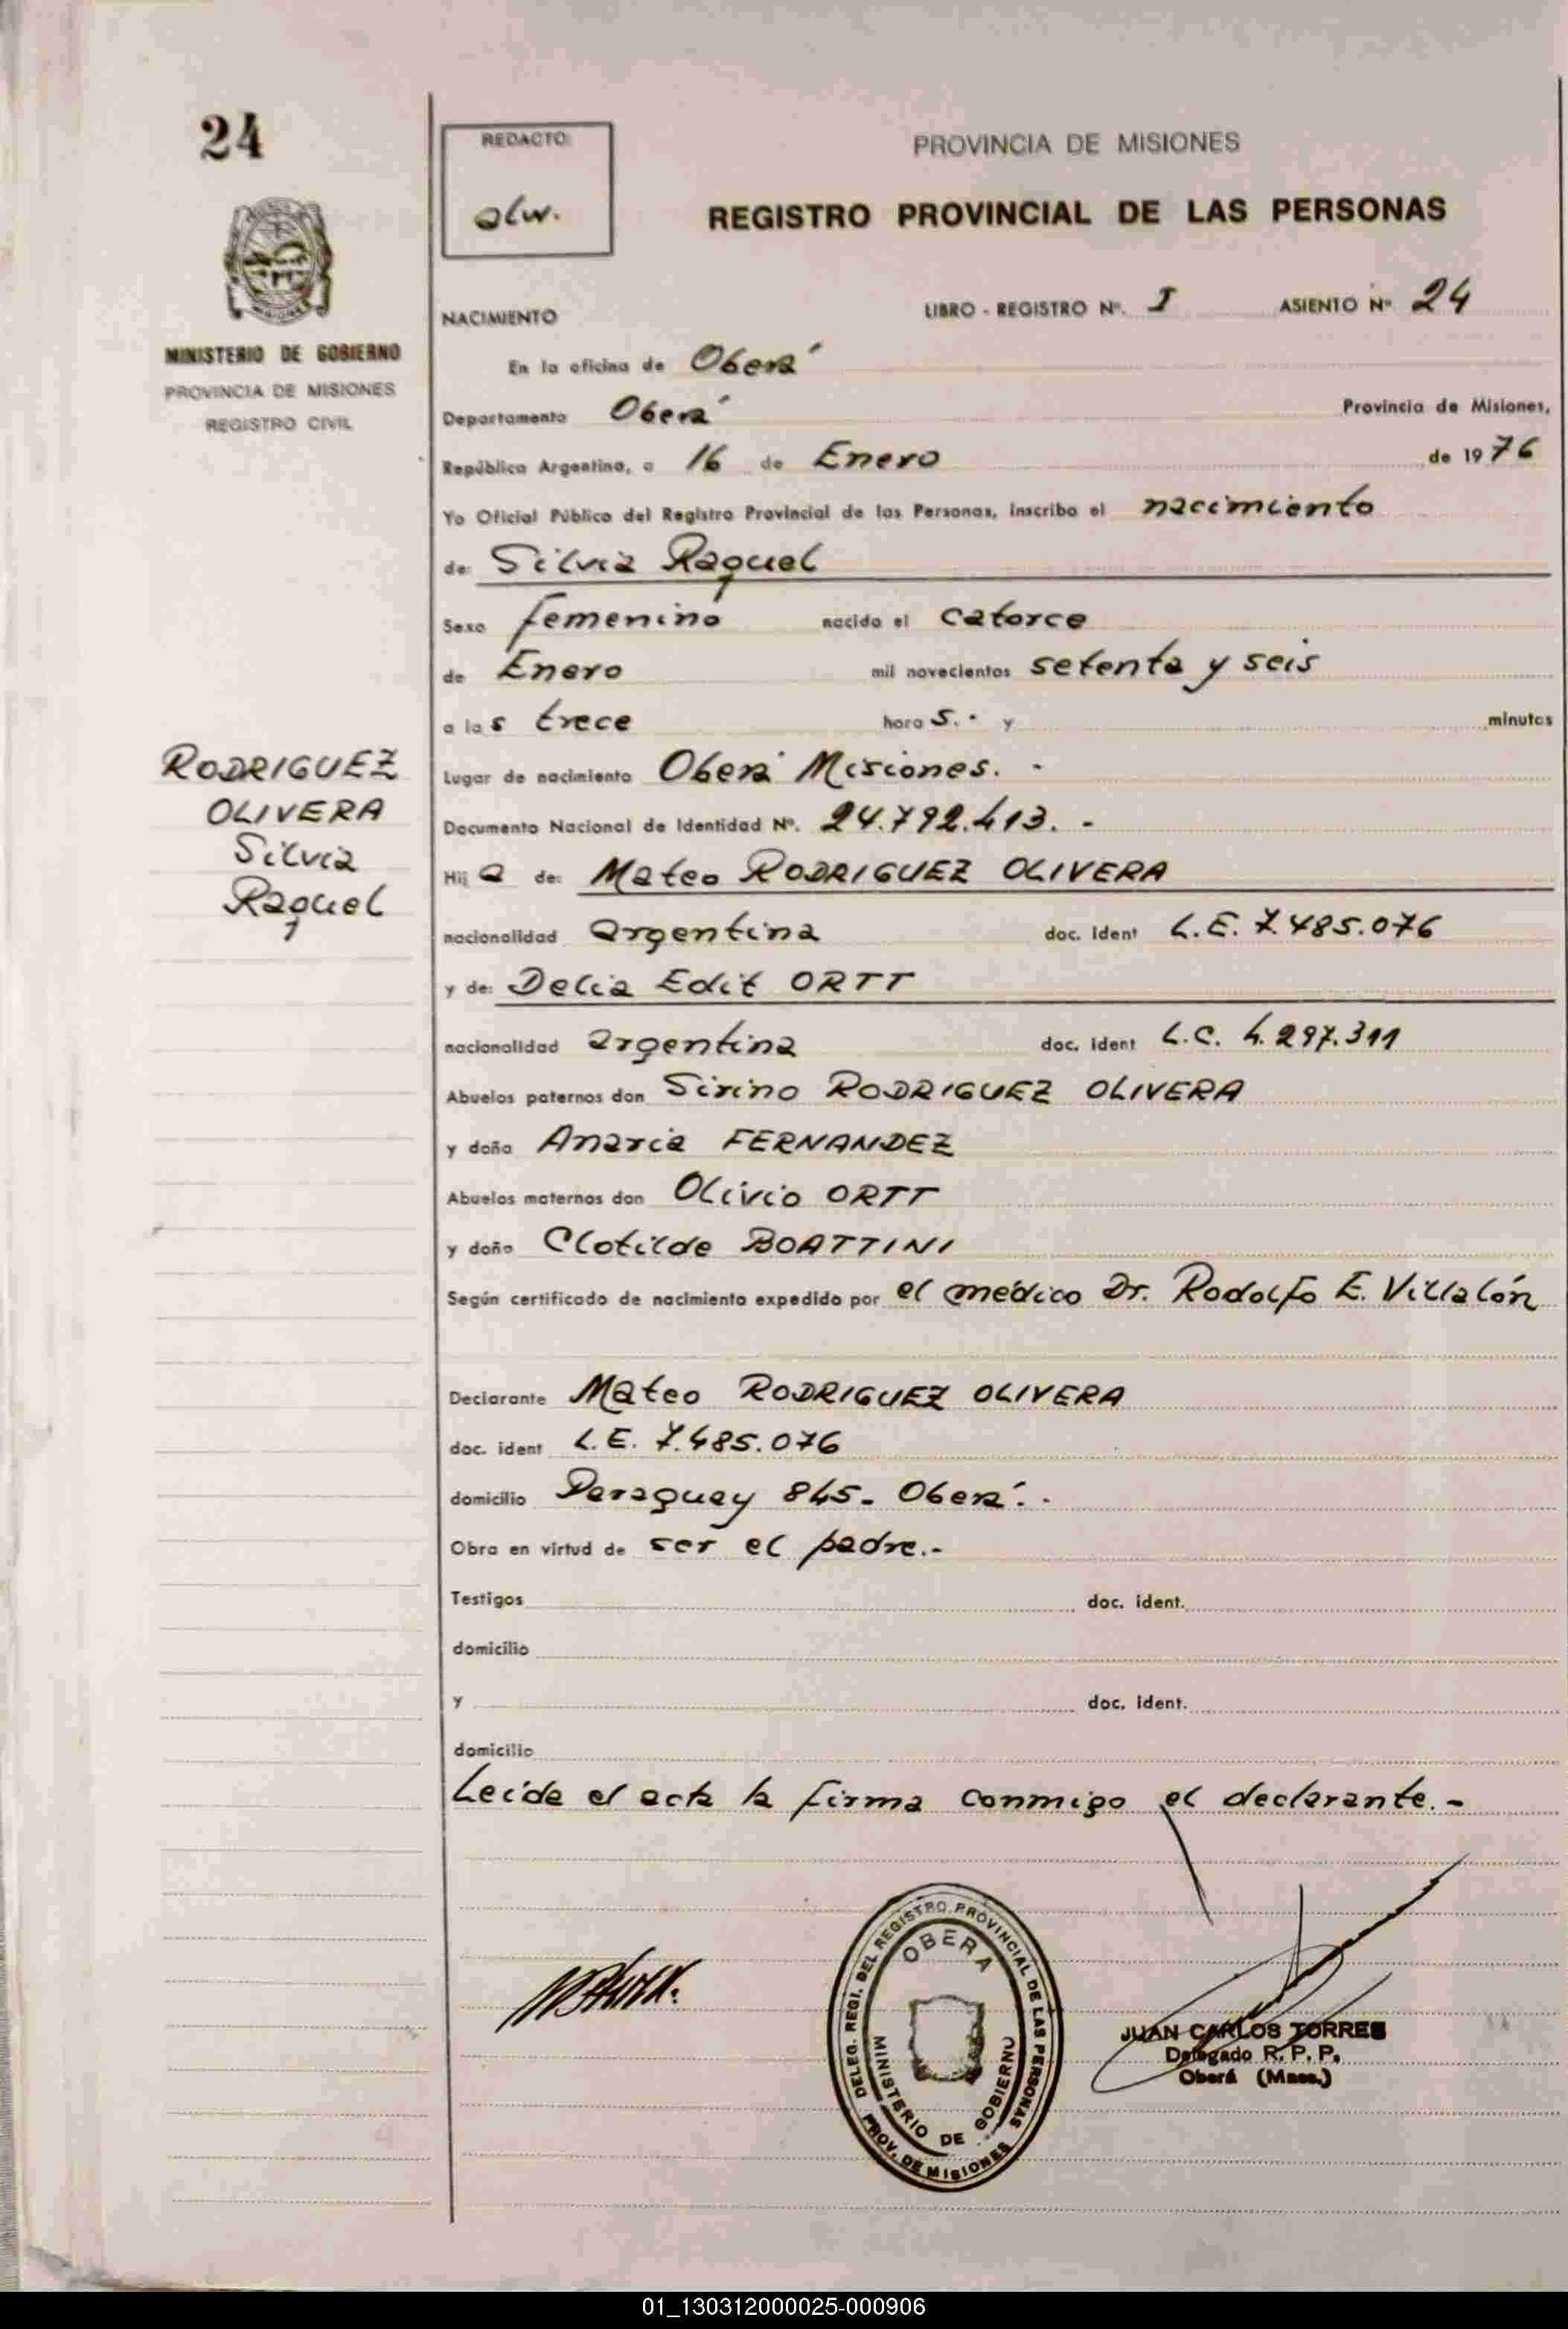 24
MINISTERIO DE GOBIERNO
PROVINCIA DE MISIONES
REGISTRO CIVIL
RODRIGUEZ
OLIVERA
Silvia
Raquel
REDACTO
alw.
PROVINCIA DE MISIONES
REGISTRO PROVINCIAL DE LAS PERSONAS
NACIMIENTO LIBRO - REGISTRO Nº. I ASIENTO Nº 24
En la oficina de Oberá
Departamento Oberá Provincia de Misiones,
República Argentina, a 16 de Enero de 1976
Yo Oficial Público del Registro Provincial de las Personas, inscribo el nacimiento
de: Silvia Raquel
Sexo femenino nacido el catorce
de Enero mil novecientos setenta y seis
a las trece horas.- y minutos
Lugar de nacimiento Oberá Misiones. -
Documento Nacional de Identidad Nº. 24.792.413. -
Hija de: Mateo RODRIGUEZ OLIVERA
nacionalidad argentina doc. ident L.E. 7.485.076
y de: Delia Edit ORTT
nacionalidad argentina doc. ident L.C. 4.297.311
Abuelos paternos don Sirino RODRIGUEZ OLIVERA
y doña Anarcia FERNANDEZ
Abuelos maternos don Olivio ORTT
y doña Clotilde BOATTINI
Según certificado de nacimiento expedido por el médico Dr. Rodolfo E. Villalón
Declarante Mateo RODRIGUEZ OLIVERA
doc. ident L.E. 7.485.076
domicilio Paraguay 845. Oberá. -
Obra en virtud de ser el padre.-
Testigos doc. ident.
domicilio
y doc. ident.
domicilio
Leida el acta la firma conmigo el declarante. -
DELEG. REGI. DEL REGISTRO PROVINCIAL DE LAS PERSONAS
OBERA
MINISTERIO DE GOBIERNO
PROV. DE MISIONES
JUAN CARLOS TORRES
Delegado R. P. P.
Oberá (Mnes.)
01_130312000025-000906